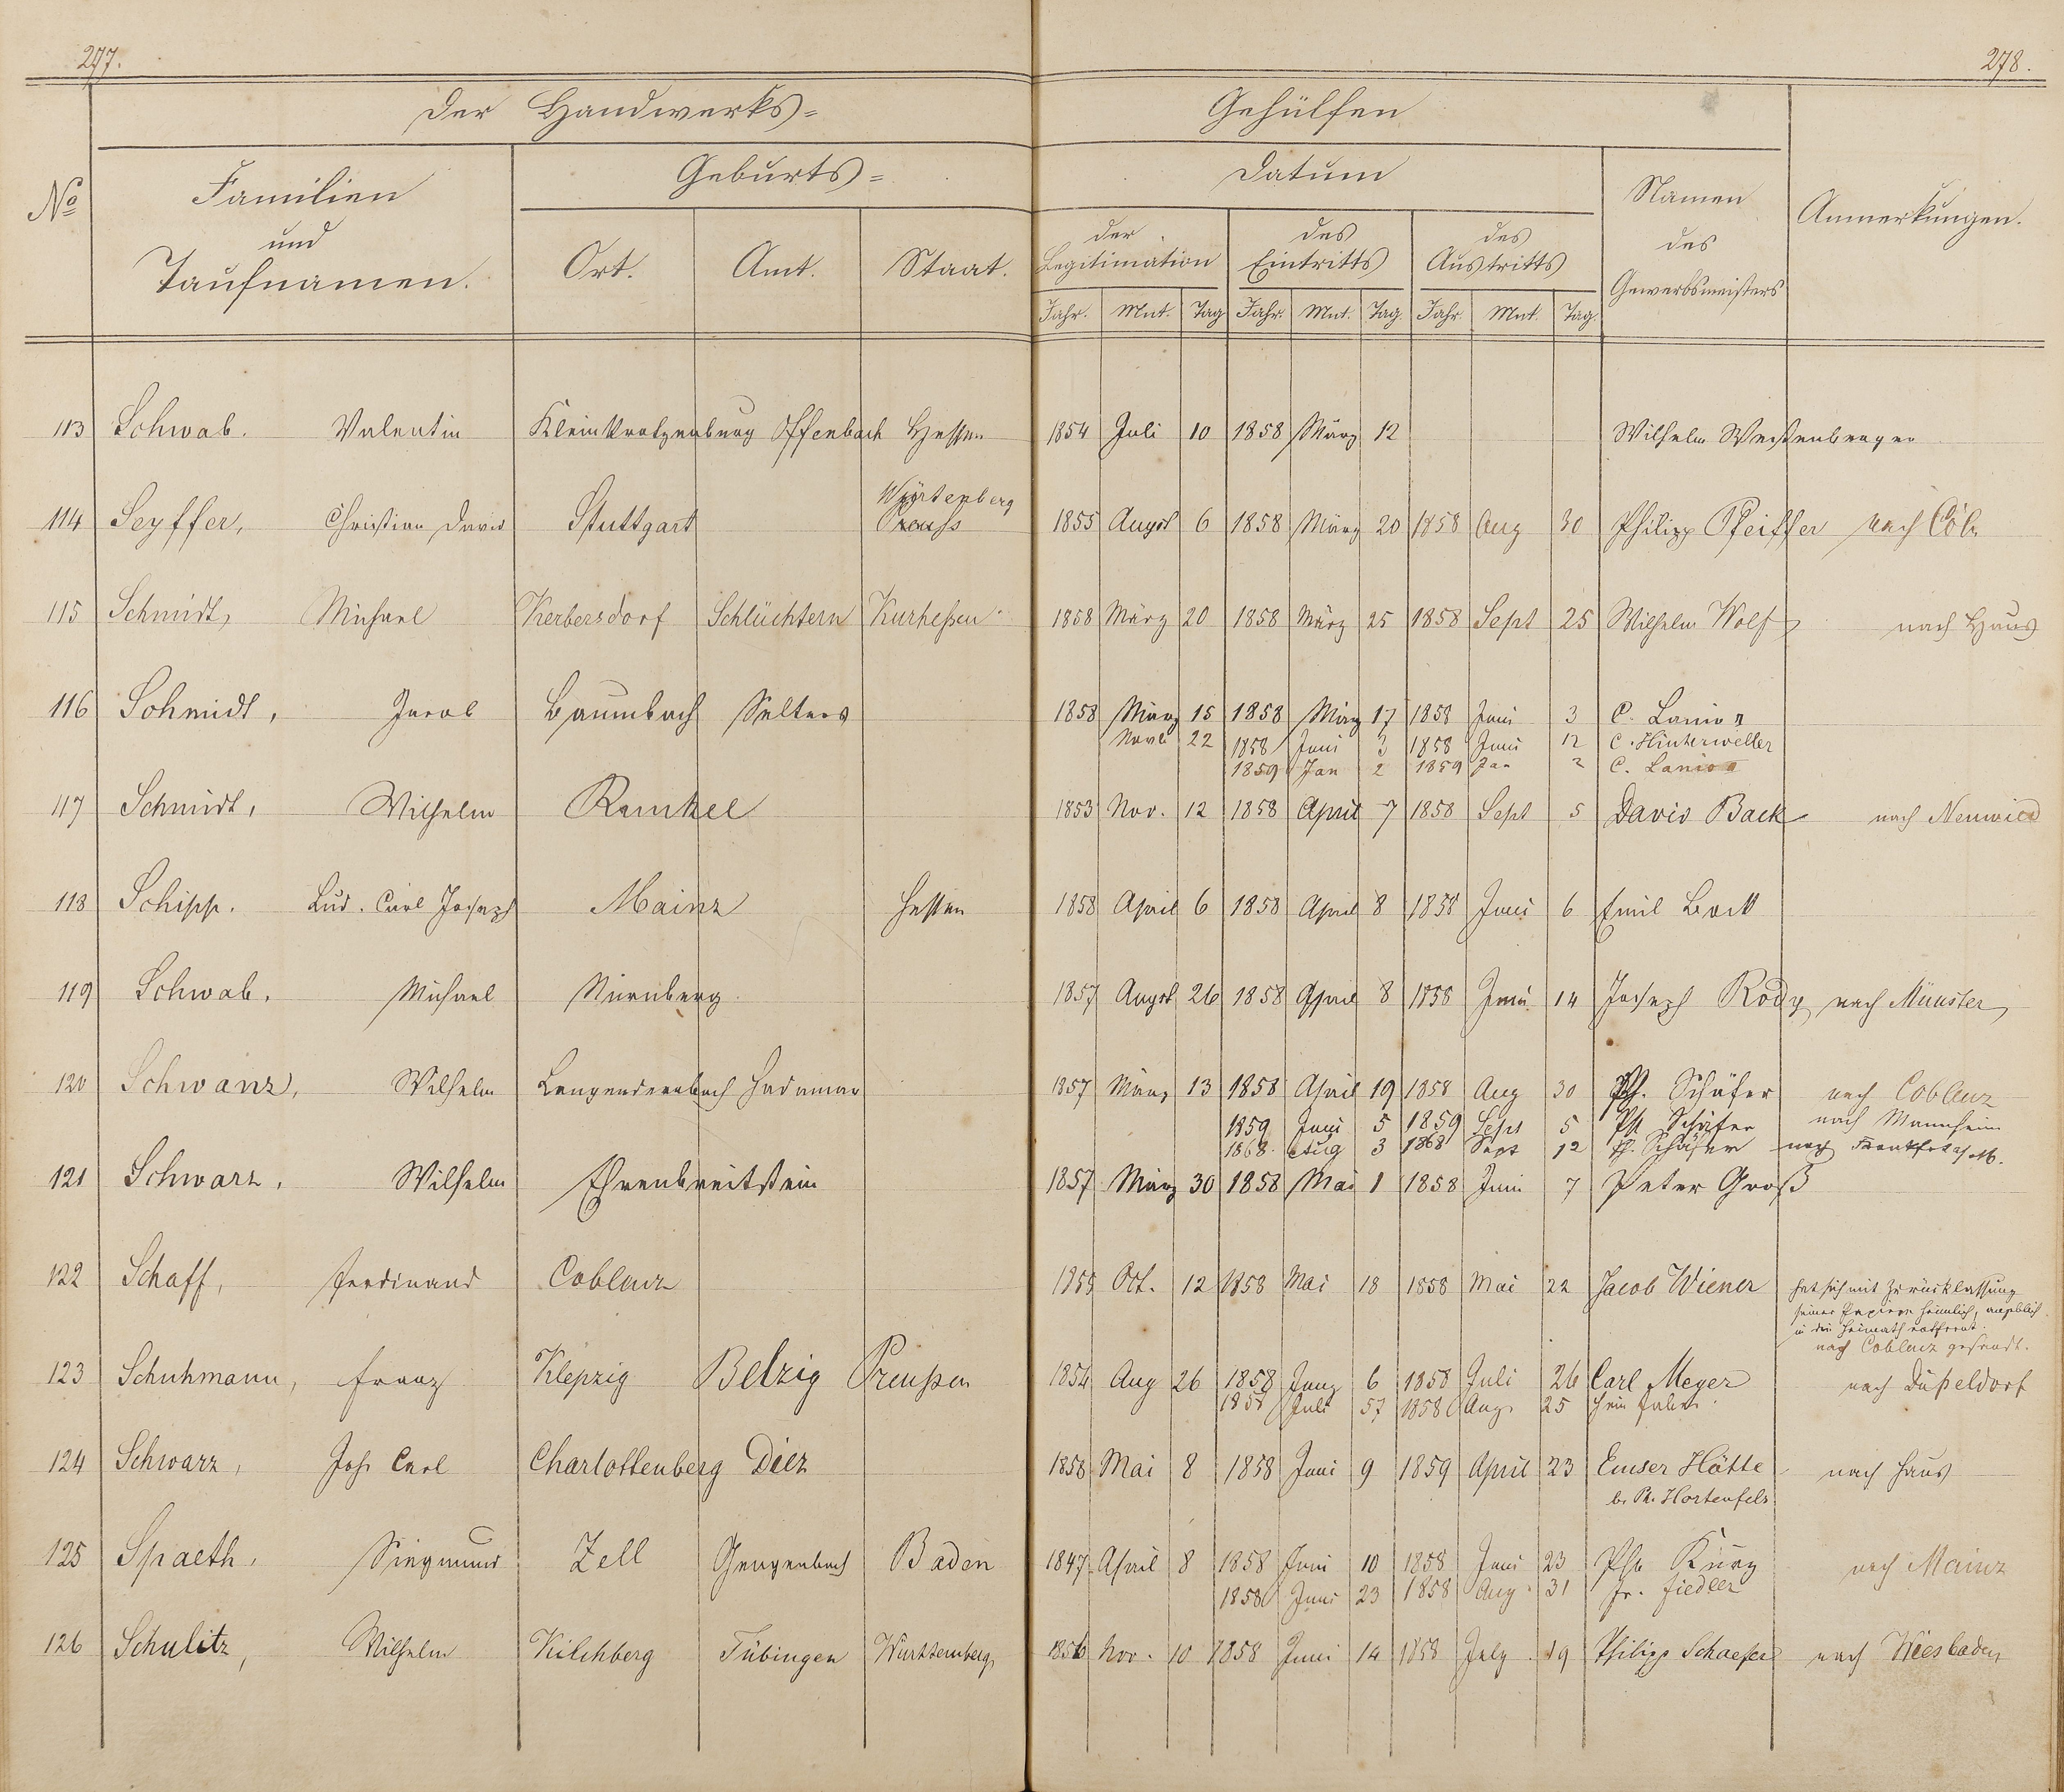 277.
278.
Der Handwerks= Gehülfen
No
Familien
und
Taufnamen.
Geburts=
Ort. Amt. Staat.
Datum
der
Legitimation
des
Eintritts
des
Austritts
Jahr. Mnt. Tag Jahr. Mnt. Tag. Jahr. Mnt. Tag.
Namen
des
Gewerbsmeisters
Anmerkungen.
113 Schwab. Valentin Klein Krotzenburg Offenbach Hessen 1854 Juli 10 1858 März 12 Wilhelm
Würtenberg
114 Seyffer, Christian David Stuttgart Preuss 1855 Augst 6 1858 März 20 1858 Aug 30 Philipp Pfeiffer nach Cöln
115 Schmidt, Michael Kerbersdorf Schlüchtern Kurheßen 1858 März 20 1858 März 25 1858 Sept 25 Wilhelm Wolf nach Haus
116 Schmidt, Jacob Baumbach Selters 1858 März 15 1858 März 17 1858 Juni 3 C. Lanio
22 1858 Juni 3 1858 Juni 12 C. Hinterweller
1859 Jan 2 1859 Jan 2 C. Lanio
117 Schmidt, Wilhelm Runkel 1853 Nov. 12 1858 April 7 1858 Sept 5 David Back nach Neuwied
118 Schipp. Lud. Carl Joseph Mainz Hessen 1858 April 6 1858 April 8 1858 Juni 6 Emil Bock
119 Schwab. Michael Nürnberg 1857 Augst 26 1858 April 8 1858 Juni 14 Joseph Rody nach Münster
120 Schwanz, Wilhelm Langendernbach Hadamar 1857 März 13 1858 April 19 1858 Aug 30 Ph. Schäfer nach Coblenz
1859 Juni 5 1859 Sept 5 Ph Schäfer nach Mannheim
1868. Aug 3 1868 Sept 12 Ph. Schäfer nach Frankfurt a/M.
121 Schwarz, Wilhelm Ehrenbreitstein 1857 März 30 1858 Mai 1 1858 Juni 7 Peter Groß
122 Schaff, Ferdinand Coblenz 1855 Oct. 12 1858 Mai 18 1858 Mai 22 Jacob Wiener hat sich mit Zurücklassung
seiner Papiere heimlich, angeblich
in die Heimath entfernt.
nach Coblenz gesandt.
123 Schuhmann, Franz Klepzig Belzig Preußen 1854 Aug 26 1858 Juny 6 1858 Juli 26 Carl Meyer nach Düßeldorf
1858 Juli 1858 Aug. 25
124 Schwarz, Joh Carl Charlottenberg Diez 1858 Mai 8 1858 Juni 9 1859 April 23 Emser Hütte nach Haus
b. Ph. Hortenfels
125 Spaeth, Siegmund Zell Gengenbach Baden 1847 April 8 1858 Juni 10 1858 Juni 23 Phil Kurz nach Mainz
1858 Juni 23 1858 Aug. 31 Fr. Fiedler
126 Schulitz, Wilhelm Kilchberg Tübingen Württemberg 1856 Nov. 10 1858 Juni 14 1858 July 19 Philipp Schaefer nach Wiesbaden